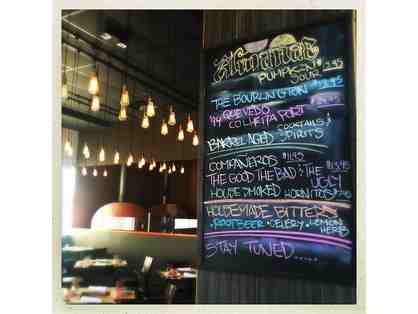 Almanac
PUMPKIN $12.95
SOUR
THE BOURLINGTON $13.95
'94 QUEVEDO
COLHEITA PORT
BARREL AGED COCKTAILS &
SPIRITS
COMPAÑEROS $11.95
THE GOOD THE BAD & THE UGLY
HOUSE SMOKED HORNITOS
HOUSEMADE BITTERS
ROOTBEER • CELERY • LEMON HERB
STAY TUNED.....